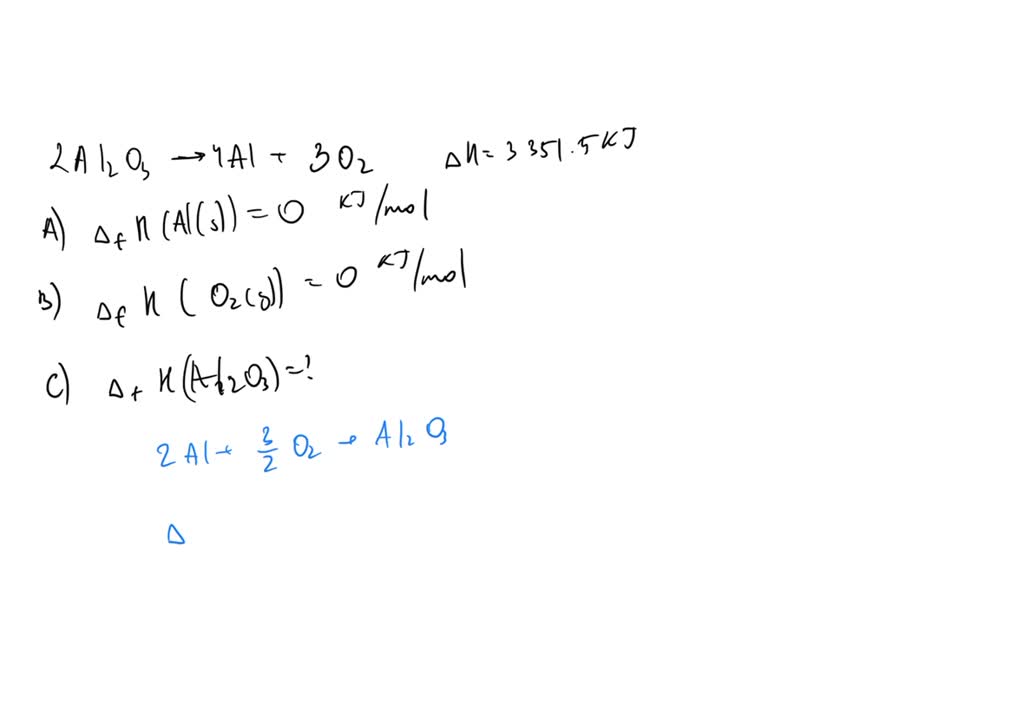 2Al₂O₃ → 4Al + 3O₂ ΔH = 3351.5 KJ
A) ΔfH (Al(s)) = 0 KJ/mol
B) ΔfH (O₂(g)) = 0 KJ/mol
C) ΔfH (Al₂O₃) = ?
2Al + 3/2 O₂ → Al₂O₃
Δ